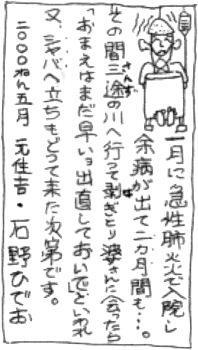 一月に急性肺炎で入院し
余病が出て二カ月間も…。
その間三途の川へ行って剥ぎとり婆さんに会ったら
「おまえはまだ早いョ出直しておいで」といわれ
又、シャバへ立ちもどって来た次第です。
二〇〇〇ねん五月 元住吉・石野ひでお